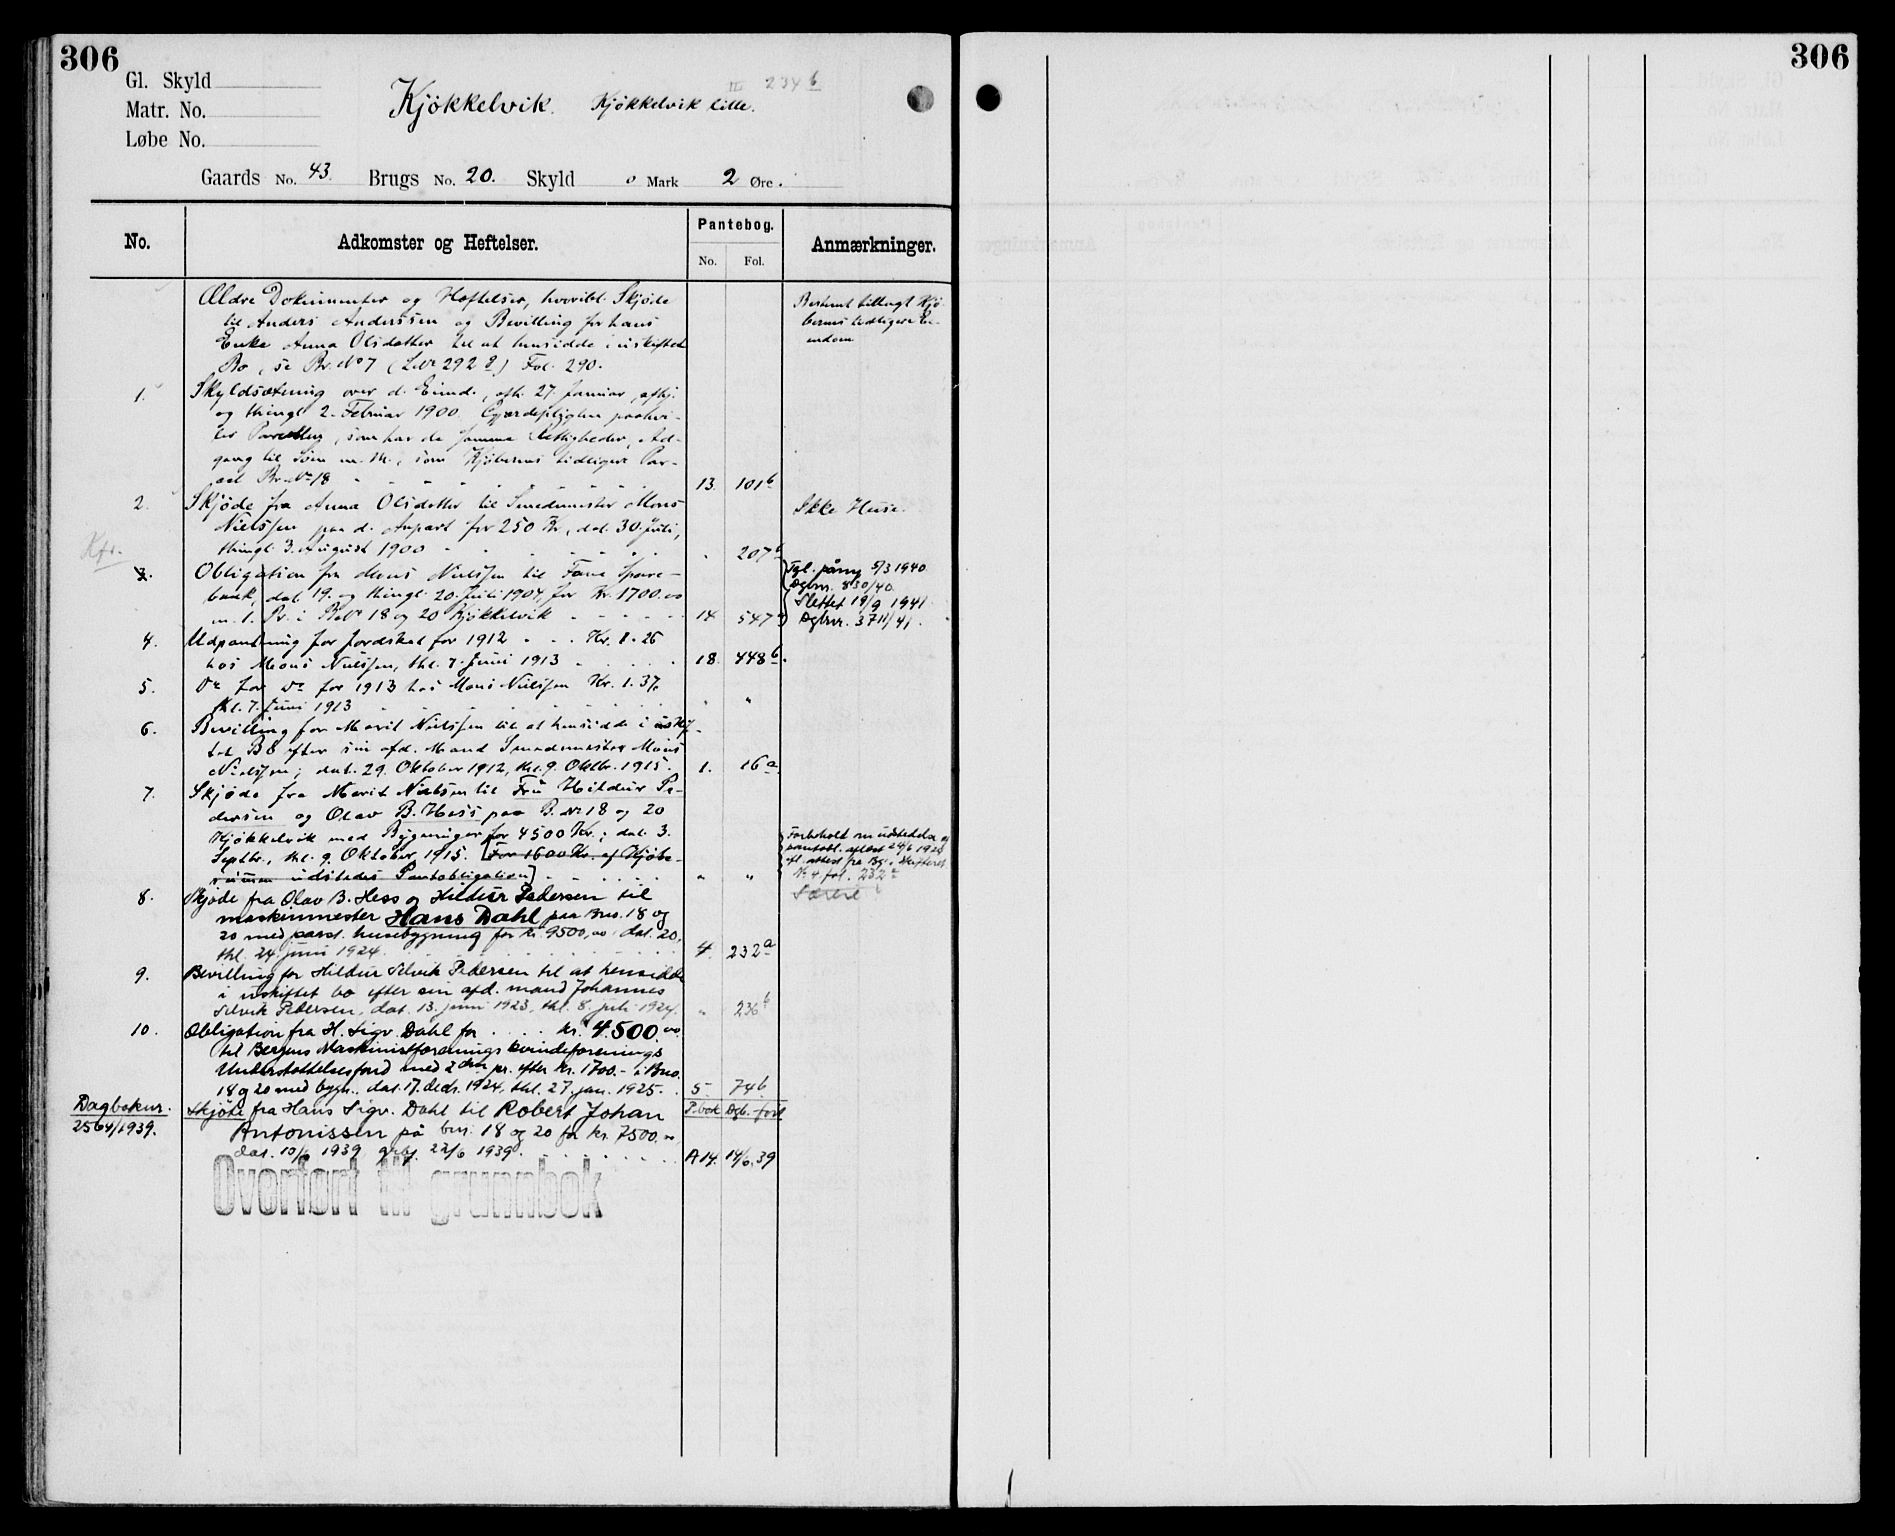 306
306
Gl. Skyld
Matr. No.
Løbe No.
Kjökkelvik. Kjökkelvik lille.
III 234 b
Gaards No. 43. Brugs No. 20. Skyld 0 Mark 2 Øre.
No. Adkomster og Heftelser. Pantebog. No. Fol. Anmærkninger.
Ældre Dokumenter og Heftelser, hvoribl. Skjöde
til Anders Anderssen og Bevilling for hans
Enke Anna Olsdatter til at hensidde i uskiftet
Bo, se Br. No 7 (LNr 292 a) Fol. 290.
Bestemt tillagt Kjö-
berens tidligere Ei-
endom
1. Skyldsætning over d. Eiend., afh. 27. Januar, afhj.
og thingl. 2. Februar 1900. Gjerdepligten paahvi-
ler Parcellen, som har de samme Rettigheder, Ad-
gang til Söen m. M., som Kjöberens tidligere Par-
cel Br. No 18 13. 101 b
2. Skjöde fra Anna Olsdatter til Smedemester Mons
Nielssen paa d. Anpart for 250 Kr., dat. 30. Juli,
thingl. 3. August 1900 " 207 b
Ikke Huse.
Kfr.
3. Obligation fra Mons Nielssen til Fane Spare-
bank, dat. 19. og thingl. 20. Juli 1904, for Kr. 1700.00
m. 1. Pr. i BNo 18 og 20 Kjökkelvik 14 547 a
Tgl. påny 5/3 1940
Dgbnr. 830/40.
Slettet 19/9 1941
Dgbnr. 3711/41.
4. Udpantning for Jordskat for 1912 Kr. 1.26
hos Mons Nielssen, thl. 7. Juni 1913 18. 448 b.
5. Do for do for 1913 hos Mons Nielssen Kr. 1.37,
thl. 7. Juni 1913 " "
6. Bevilling for Marit Nielssen til at hensidde i uskif-
tet Bo efter sin afd. Mand Smedemester Mons
Nielssen; dat. 29. Oktober 1912, thl. 9. Oktbr. 1915. 1. 16 a
7. Skjöde fra Marit Nielsen til Fru Hildur Pe-
dersen og Olav B. Hess paa B.No 18 og 20
Kjökkelvik med Bygninger for 4500 Kr.; dat. 3.
Septbr., thl. 9. Oktober 1915. [For 1600 Kr. af Kjöbe-
summen udstedes Pantobligation] " "
Forbehold om udstedelse af
pantobl. aflæst 24/6 1924
efl. attest fra By- i Skifteret
No 4 fol. 232 a
8. Skjöde fra Olav B. Hess og Hildur Pedersen til
maskinmester Hans Dahl paa Bno. 18 og
20 med paast. husebygning for kr. 9500,00, dat. 20,
thl. 24. juni 1924. 4. 232 a
9. Bevilling for Hildur Selvik Pedersen til at hensidde
i uskiftet bo efter sin afd. mand Johannes
Selvik Pedersen, dat. 13. juni 1923, thl. 8. juli 1924. " 236 b
10. Obligation fra H. Sigv. Dahl for kr. 4.500.00
til Bergens Maskinistforenings kvindeforenings
Understøttelsesfond med 2den pr. efter kr. 1700.- i Bno.
18 og 20 med bygn., dat. 17. decbr. 1924, thl. 27. jan. 1925. 5. 74 b
Dagboknr.
2564/1939.
Skjöte fra Hans Sigv. Dahl til Robert Johan
P.bok Dgb.-ført
Antonissen på bnr. 18 og 20 for kr. 7500.00
dat. 10/6 1939, 22/6 1939. A14. 14/6.39
Overført til grunnbok